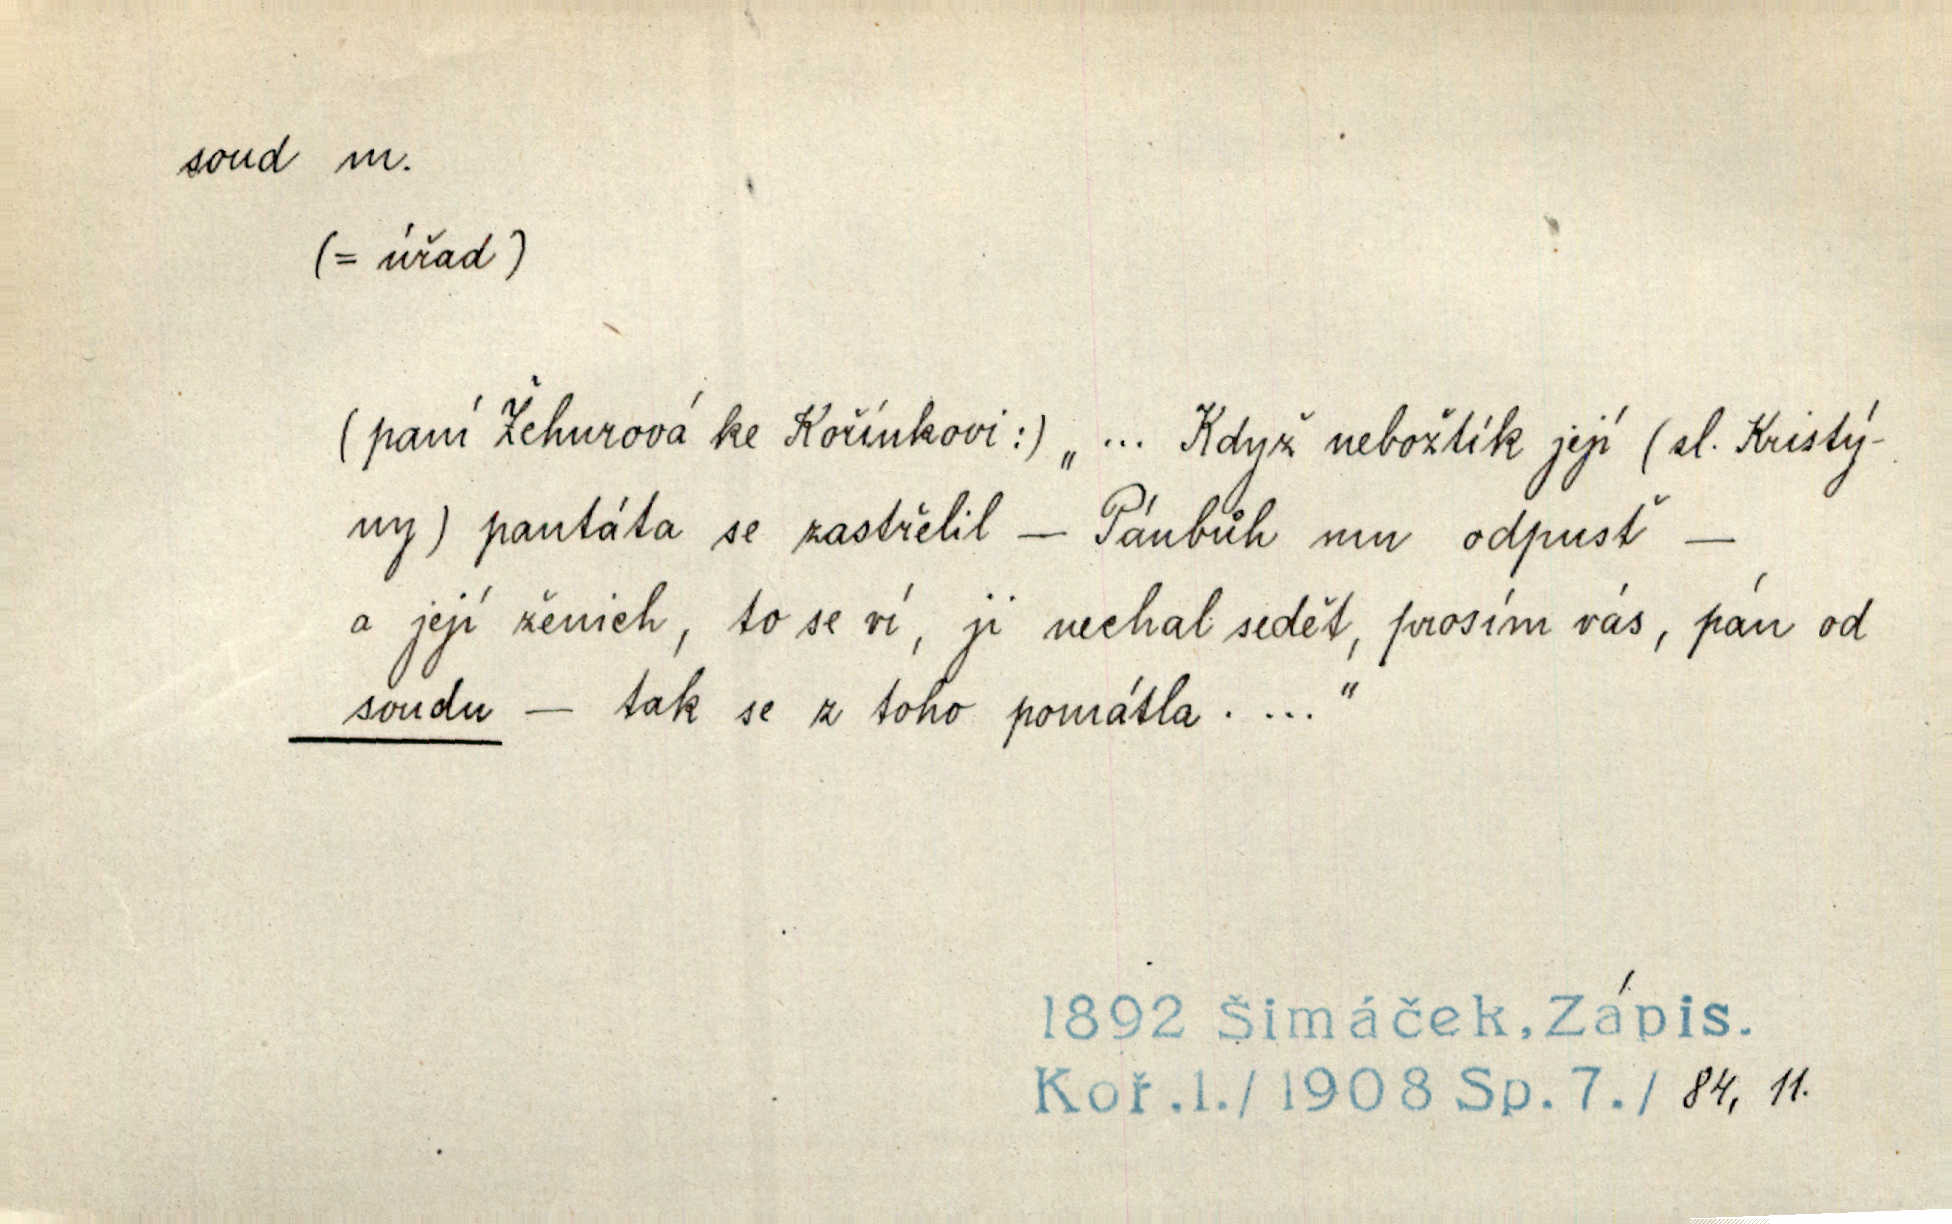 soud m.
(= úřad)
(paní Žehurová ke Kořínkovi:) „ ... Když nebožtík její (sl. Kristý-
ny) pantáta se zastřelil — Pánbůh mu odpusť —
a její ženich, to se ví, ji nechal sedět, prosím vás, pán od
soudu — tak se z toho pomátla. ..."
1892 Šimáček, Zápis.
Koř.1./1908 Sp.7./ 84, 11.